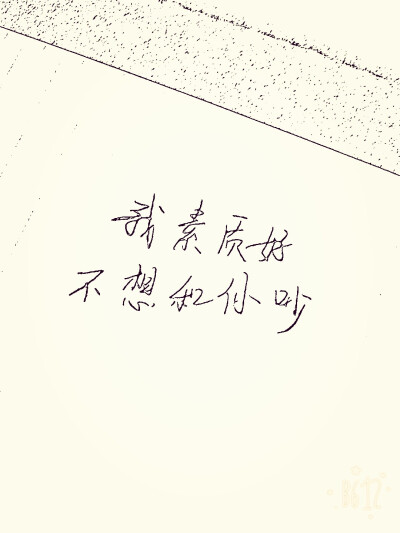 我素质好
不想和你吵